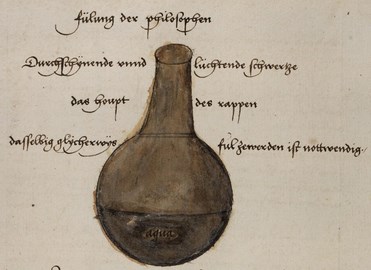 fülung der philosophen
Durchschÿnende vnnd lüchtende schwertze
das houpt des rappen
dasselbig glÿcherwÿs ful zewerden ist nottwendig.
aqua